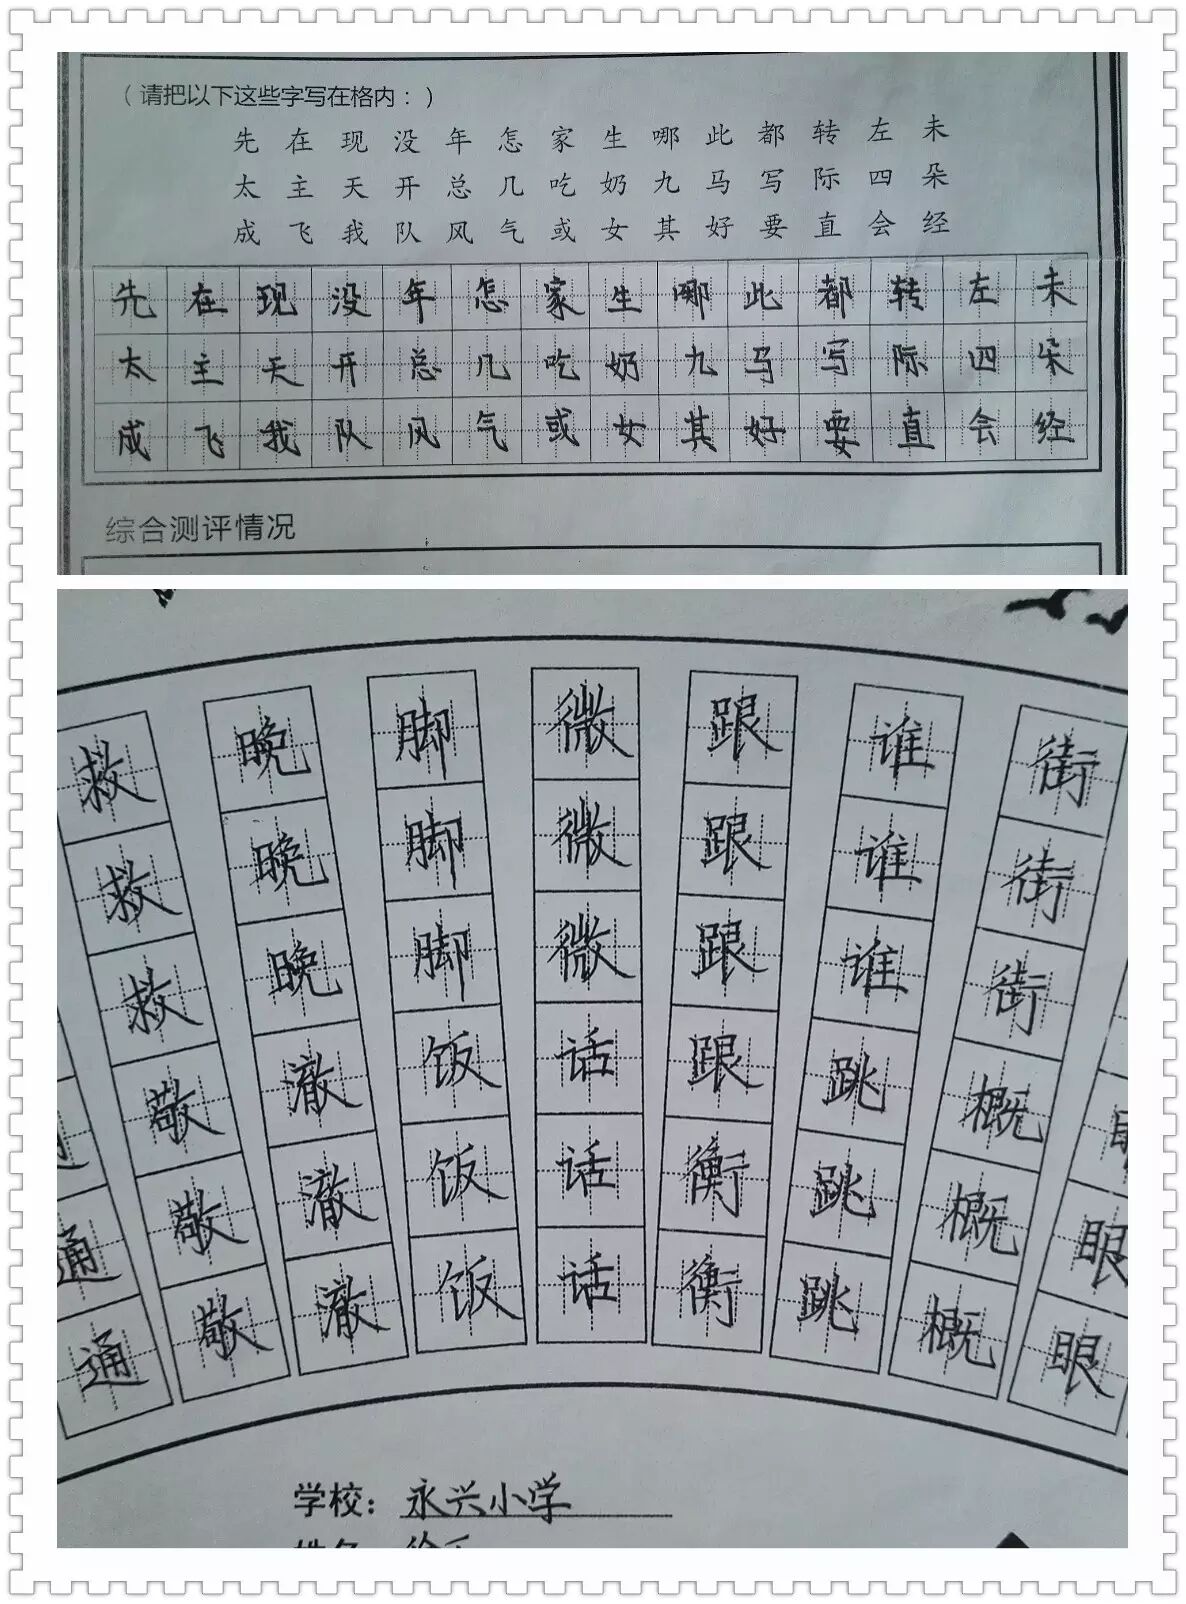 （请把以下这些字写在格内：）
先 在 现 没 年 怎 家 生 哪 此 都 转 左 未
太 主 天 开 总 几 吃 奶 九 马 写 际 四 朵
成 飞 我 队 风 气 或 女 其 好 要 直 会 经
先 在 现 没 年 怎 家 生 哪 此 都 转 左 未
太 主 天 开 总 几 吃 奶 九 马 写 际 四 朵
成 飞 我 队 风 气 或 女 其 好 要 直 会 经
综合测评情况
救 晚 脚 微 跟 谁 街
救 晚 脚 微 跟 谁 街
救 晚 脚 微 跟 谁 街
敬 澈 饭 话 跟 跳 概
通 敬 澈 饭 话 衡 跳 概 眼
通 敬 澈 饭 话 衡 跳 概 眼
学校：永兴小学